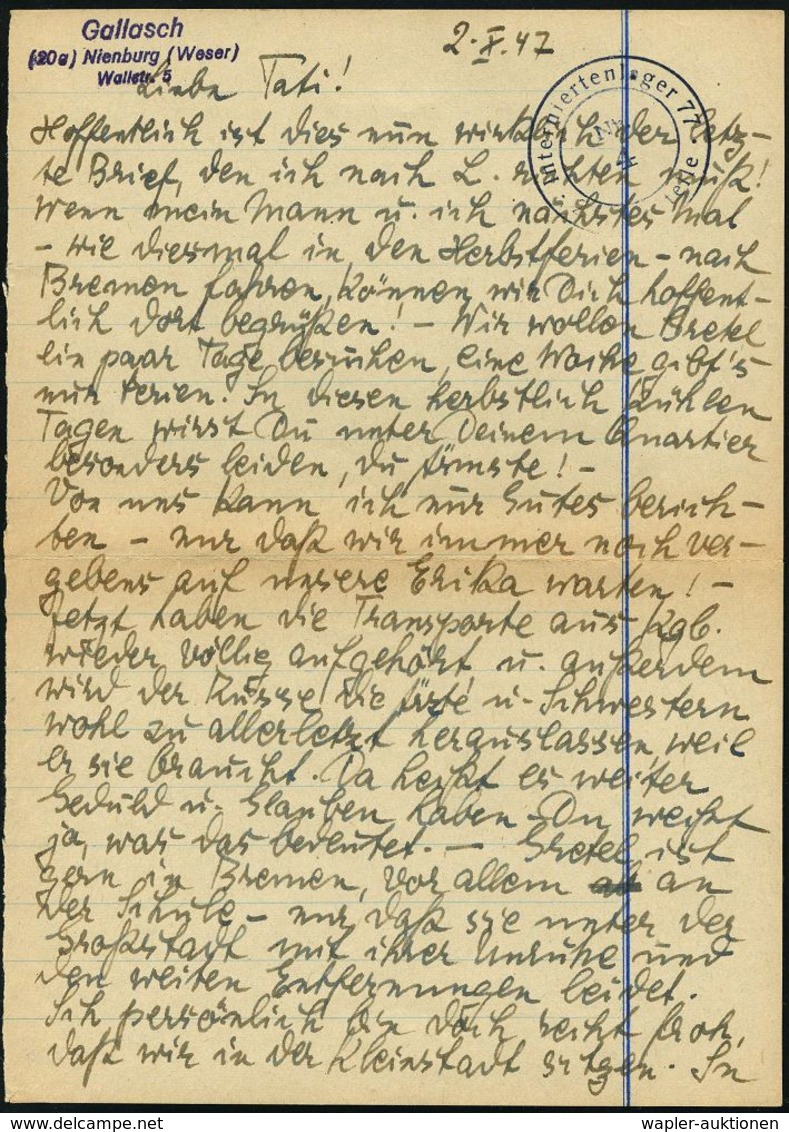 Gallasch
(20a) Nienburg (Weser)
Wallstr. 5
2.X.47
Internierten lager 77
Nr. 4
Liebe Tati!
Hoffentlich ist dies nun wirklich der letz-
te Brief, den ich nach L. richten muß!
Wenn mein Mann u. ich nächstes Mal
- wie diesmal in den Herbstferien - nach
Bremen fahren, können wir Dich hoffent-
lich dort begrüßen! - Wir wollen Gretel
ein paar Tage besuchen, eine Woche gibt's
nur Ferien. In diesen herbstlich kühlen
Tagen wirst Du unter Deinem Quartier
besonders leiden, du Ärmste! -
Von uns kann ich nur Gutes berich-
ten - nur daß wir immer noch ver-
gebens auf unsere Erika warten! -
Jetzt haben die Transporte aus Kgb.
wieder völlig aufgehört, u. außerdem
wird der Russe die Ärzte u. Schwestern
wohl zu allerletzt herauslassen, weil
er sie braucht. Da heißt es weiter
Geduld u. Glauben haben - Du weißt
ja, was das bedeutet. - Gretel ist
gern in Bremen, vor allem an
der Schule - nur daß sie unter der
Großstadt mit ihrer Unruhe und
den weiten Entfernungen leidet.
Ich persönlich bin doch recht froh,
daß wir in der Kleinstadt sitzen. In
wapler-auktionen